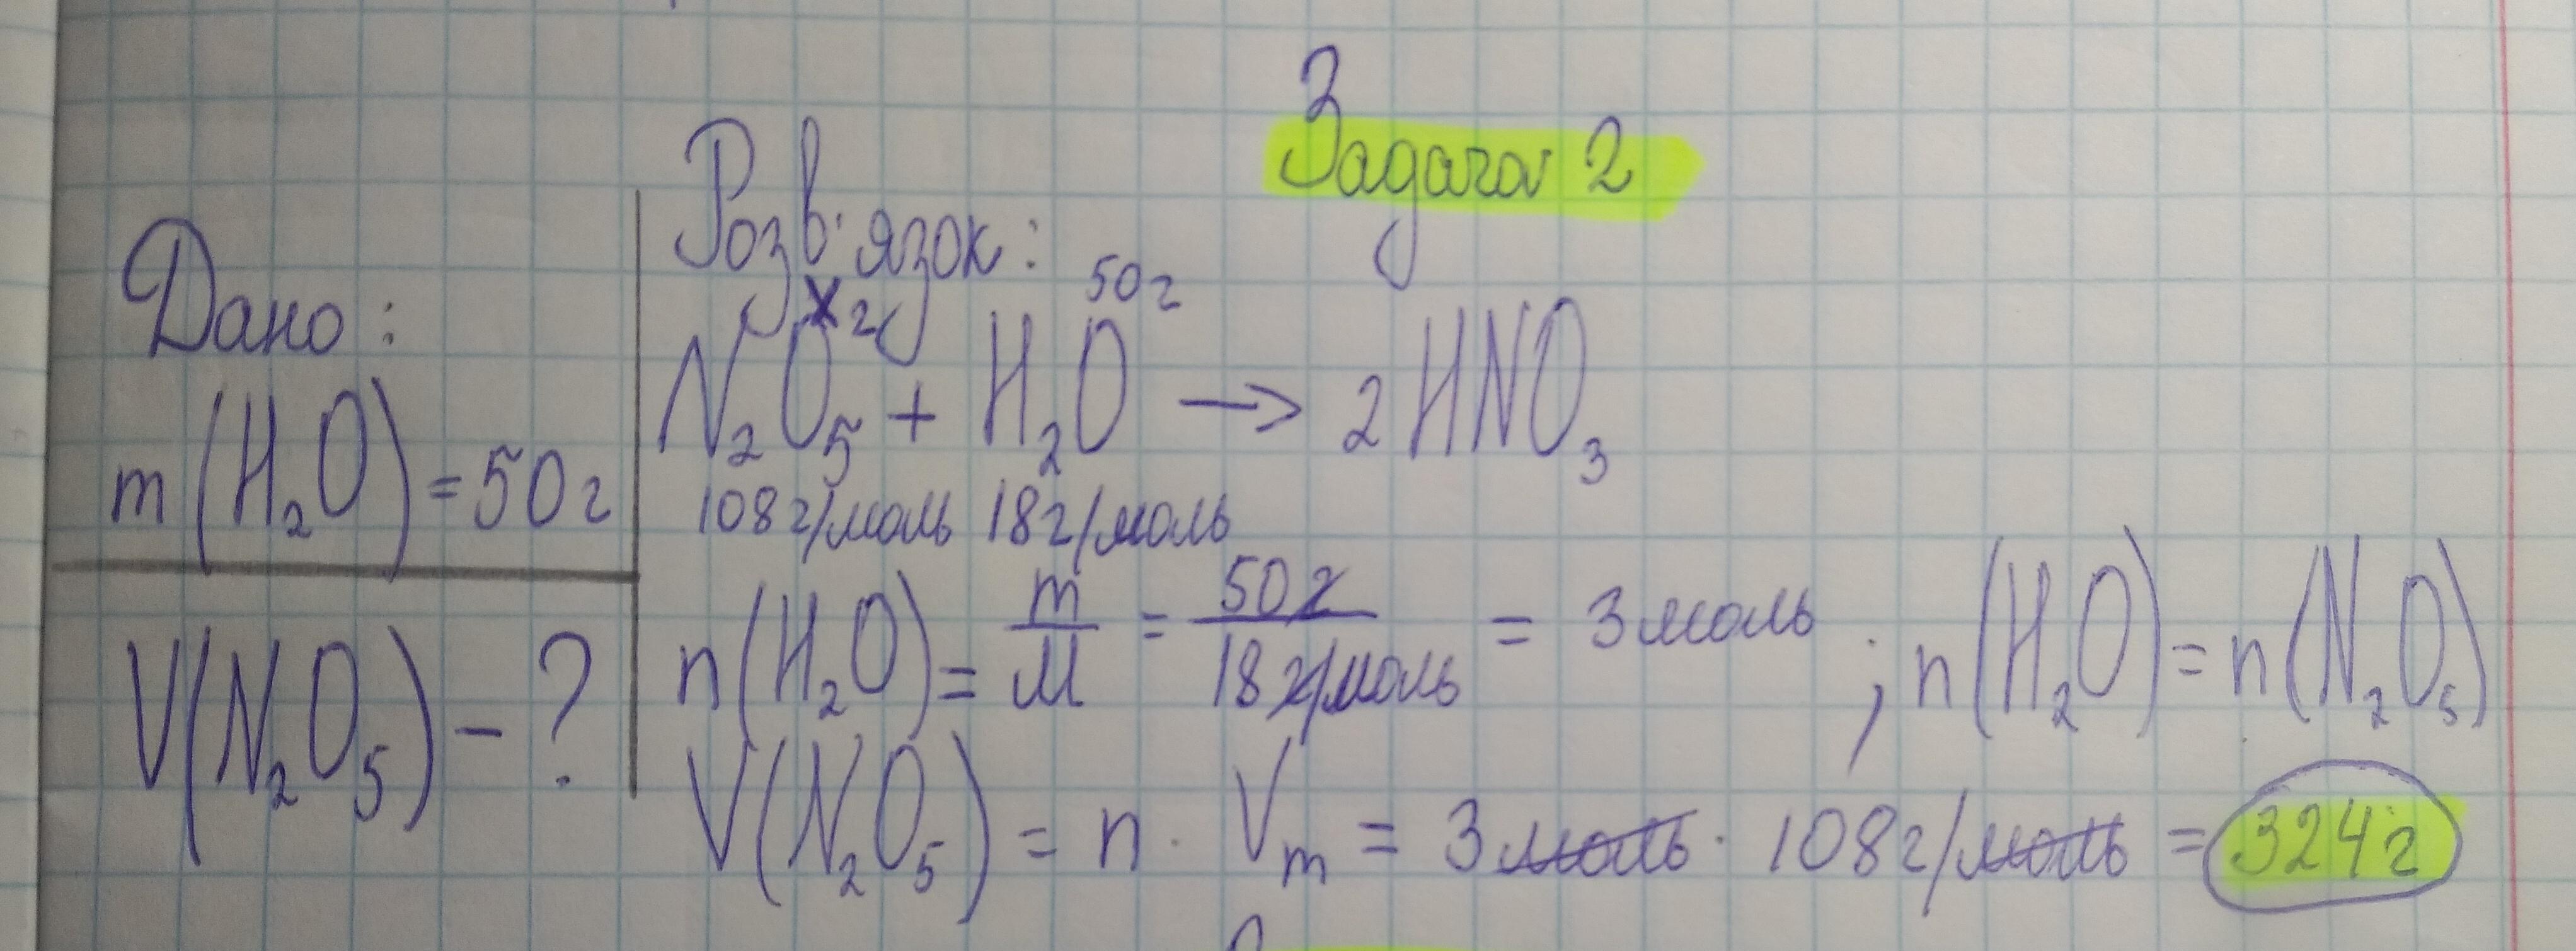 Задача 2
Дано:
m(H₂O) = 50г
V(N₂O₅) - ?
Розв'язок:
x г 50г
N₂O₅ + H₂O → 2HNO₃
108г/моль 18г/моль
n(H₂O) = m/M = 50г/18г/моль = 3моль ; n(H₂O) = n(N₂O₅)
V(N₂O₅) = n · Vm = 3моль · 108г/моль = 324г